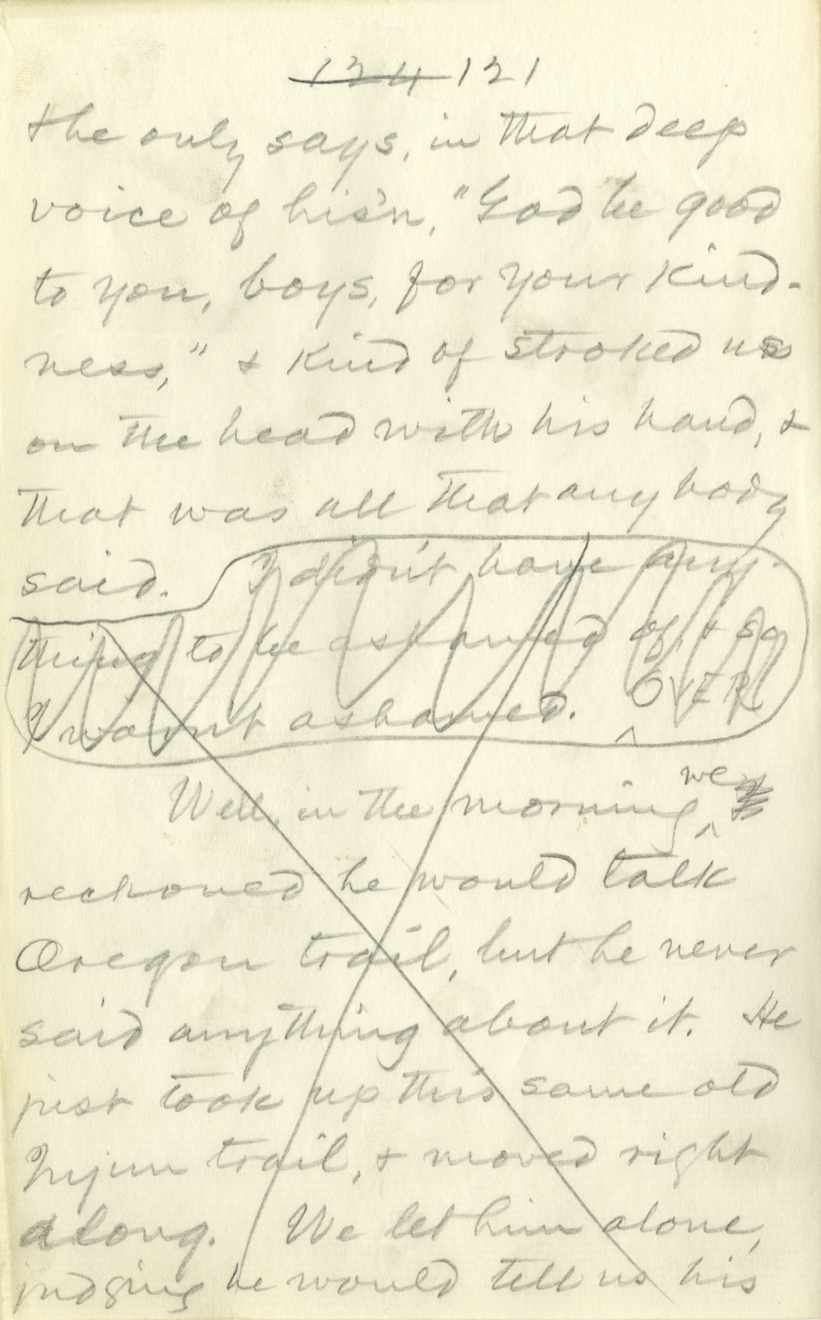 124 121
& he only says, in that deep
voice of his'n, "God be good
to you, boys, for your kind-
ness," & kind of stroked us
on the head with his hand, &
that was all that anybody
said. I didn't have any-
thing to be ashamed of, & so
I warn't ashamed. OVER
Well, in the morning, we
reckoned he would talk
Oregon trail, but he never
said anything about it. He
just took up this same old
Injun trail, & moved right
along. We let him alone,
judging he would tell us his